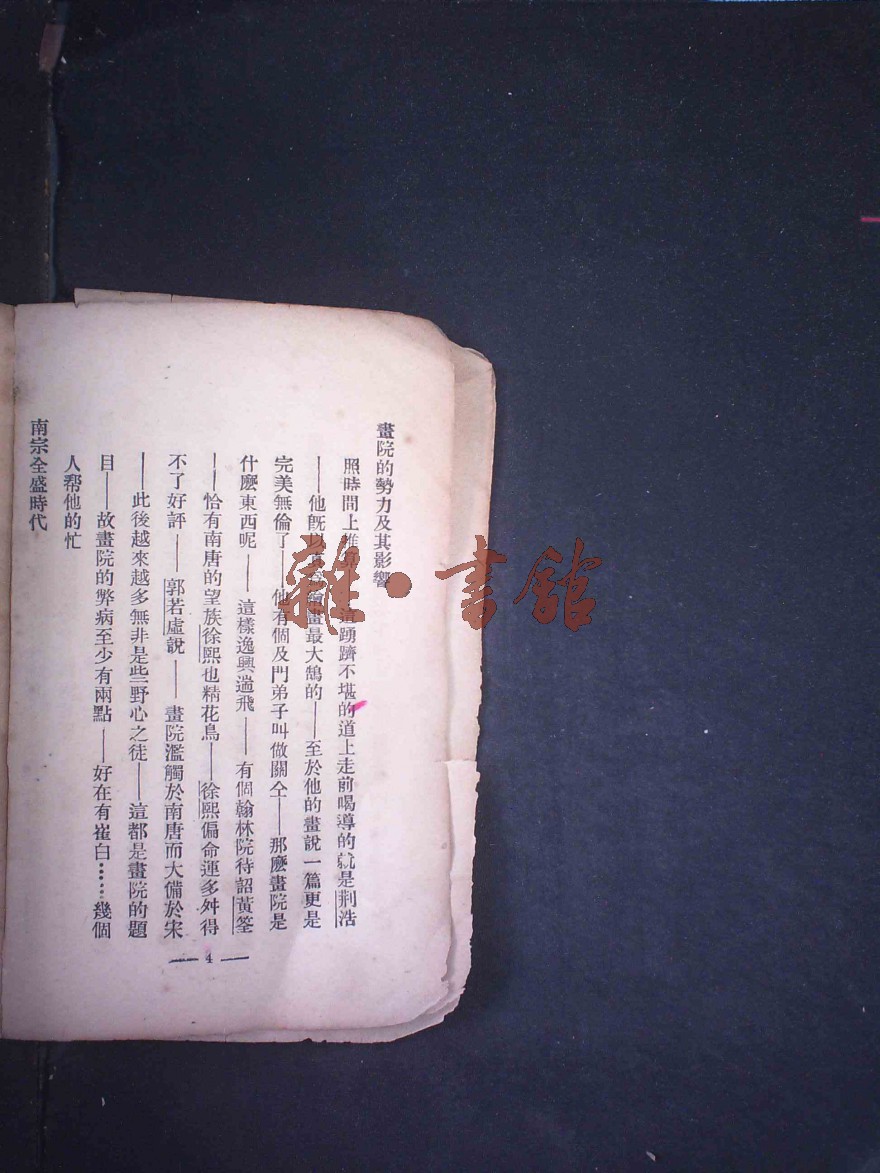 畫院的勢力及其影響
照時間上推 這踴躋不堪的道上走前喝導的就是荆浩
——他旣以 畫最大鵠的——至於他的畫說一篇更是
完美無倫了——他有個及門弟子叫做關仝——那麽畫院是
什麽東西呢——這樣逸興遄飛——有個翰林院待詔黃筌
——恰有南唐的望族徐熙也精花鳥——徐熙偏命運多舛得
不了好評——郭若虛說——畫院濫觴於南唐而大備於宋
——此後越來越多無非是些野心之徒——這都是畫院的題
目——故畫院的弊病至少有兩點——好在有崔白……幾個
人帮他的忙
南宗全盛時代
— 4 —
雜·書館